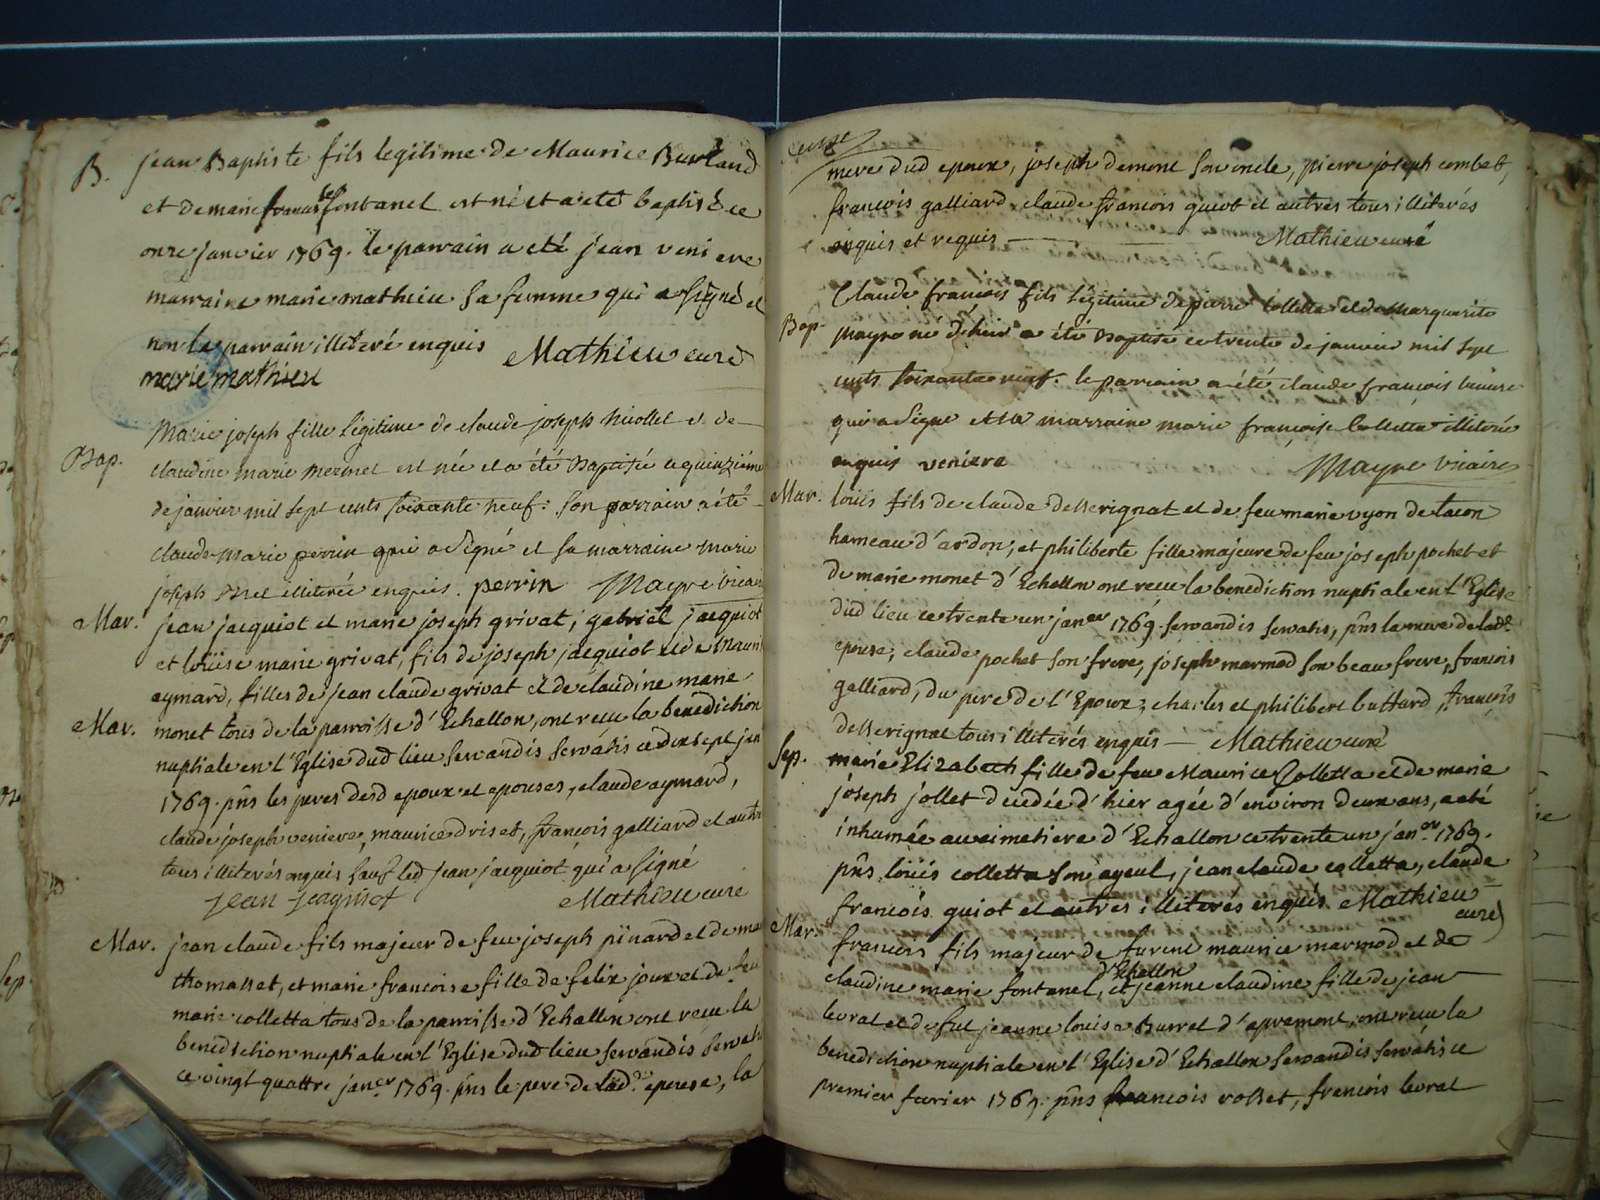 B. jean Baptiste fils legitime de Maurice Burland
et de marie françoise fontanel est né et a eté baptisé ce
onze janvier 1769. le parrain a eté jean veniere
marraine marie mathieu sa femme qui a signé et
non le parrain illiteré enquis Mathieu curé
marie mathieu
Marie joseph fille légitime de claude joseph nicollet et de
Bap. claudine marie mermet est née et a été Baptisée ce quinzième
de janvier mil sept cents soixante neuf. son parrain a été
claude marie perrin qui a signé et sa marraine marie
joseph illiterée enquis. perrin Mayre vicaire
Mar. jean jacquiot et marie joseph grivat, gabriel jacquiot
et loüise marie grivat, fils de joseph jacquiot et de
aymard, filles de jean claude grivat et de claudine marie
Mar. monet tous de la parroisse d'Echallon, ont recu la benediction
nuptiale en l'Eglise dud lieu servandis servatis ce dix sept jan
1769. pns les peres desd epoux et epouses, claude aymard,
claude joseph veniere, maurice driset, françois galliard et autres
tous illiterés enquis sauf led jean jacquiot qui a signé
jean jacquiot Mathieu curé
Mar. jean claude fils majeur de feu joseph pinard et de
thomasset, et marie francoise fille de felix joux et de feu
marie colletta tous de la parroisse d'Echallon ont recu la
benediction nuptiale en l'Eglise dud lieu servandis servatis
ce vingt quattre janer 1769. pns le pere de lad.e epouse, la
mere dud epoux, joseph demont son oncle, pierre joseph combet,
francois galliard, claude francois guiot et autres tous illiterés
enquis et requis Mathieu curé
Claude francois fils légitime de pierre Colletta et de Marguerite
Bap. mayre né d'hier a été Baptisé ce trente de janvier mil sept
cents soixante neuf. le parrain a été claude françois veniere
qui a signé et sa marraine marie françoise Colletta illiterée
enquis veniere Mayre vicaire
Mar. loüis fils de claude desserignat et de feu marie vyon de tacon
hameau d'ardon, et philiberte fille majeure de feu joseph pochet et
de marie monet d'Echallon ont recu la benediction nuptiale en l'Eglise
dud lieu ce trente un janer 1769. servandis servatis, pns la mere de lad.e
epouse, claude pochet son frere, joseph marmod son beau frere, francois
galliard, du pere de l'Epoux, charles et philibert buttard, françois
desserignat tous illiterés enquis Mathieu curé
Sep. marie Elizabeth fille de feu Maurice Colletta et de marie
joseph jollet decedée d'hier agée d'environ deux ans, a eté
inhumée au cimetiere d'Echallon ce trente un janer 1769.
pns loüis colletta son ayeul, jean claude colletta, claude
francois guiot et autres illiterés enquis Mathieu
curé
Mar. francois fils majeur de maurice marmod et de
d'Echallon
claudine marie fontanel, et jeanne claudine fille de jean
levrat et de fut jeanne louise Burret d'apremont, ont recu la
benediction nuptiale en l'Eglise d'Echallon servandis servatis ce
premier fevrier 1769. pns francois rosset, francois levrat